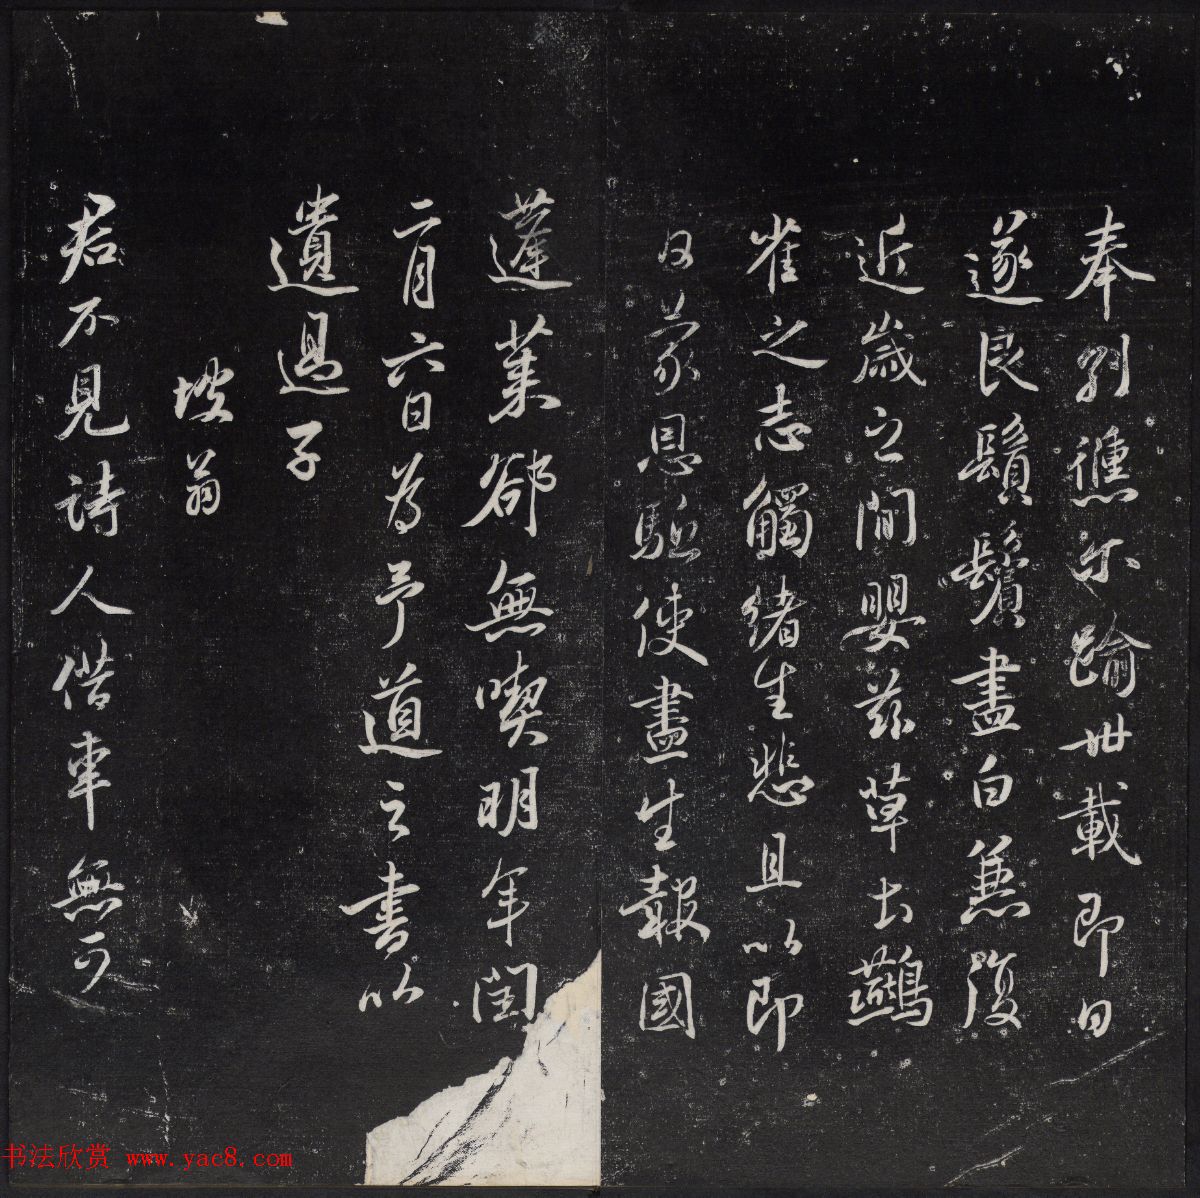 奉別倐尔踰卅載即日
遂良鬢鬚盡白兼復
近歲之間嬰茲草土鷰
雀之志觸緒生悲且以即
日蒙恩驅使盡生報國
蓬萊卻無喫明年閏
二月六日為予道之書以
遺過子
坡翁
君不見詩人借車無可
书法欣赏 www.yac8.com